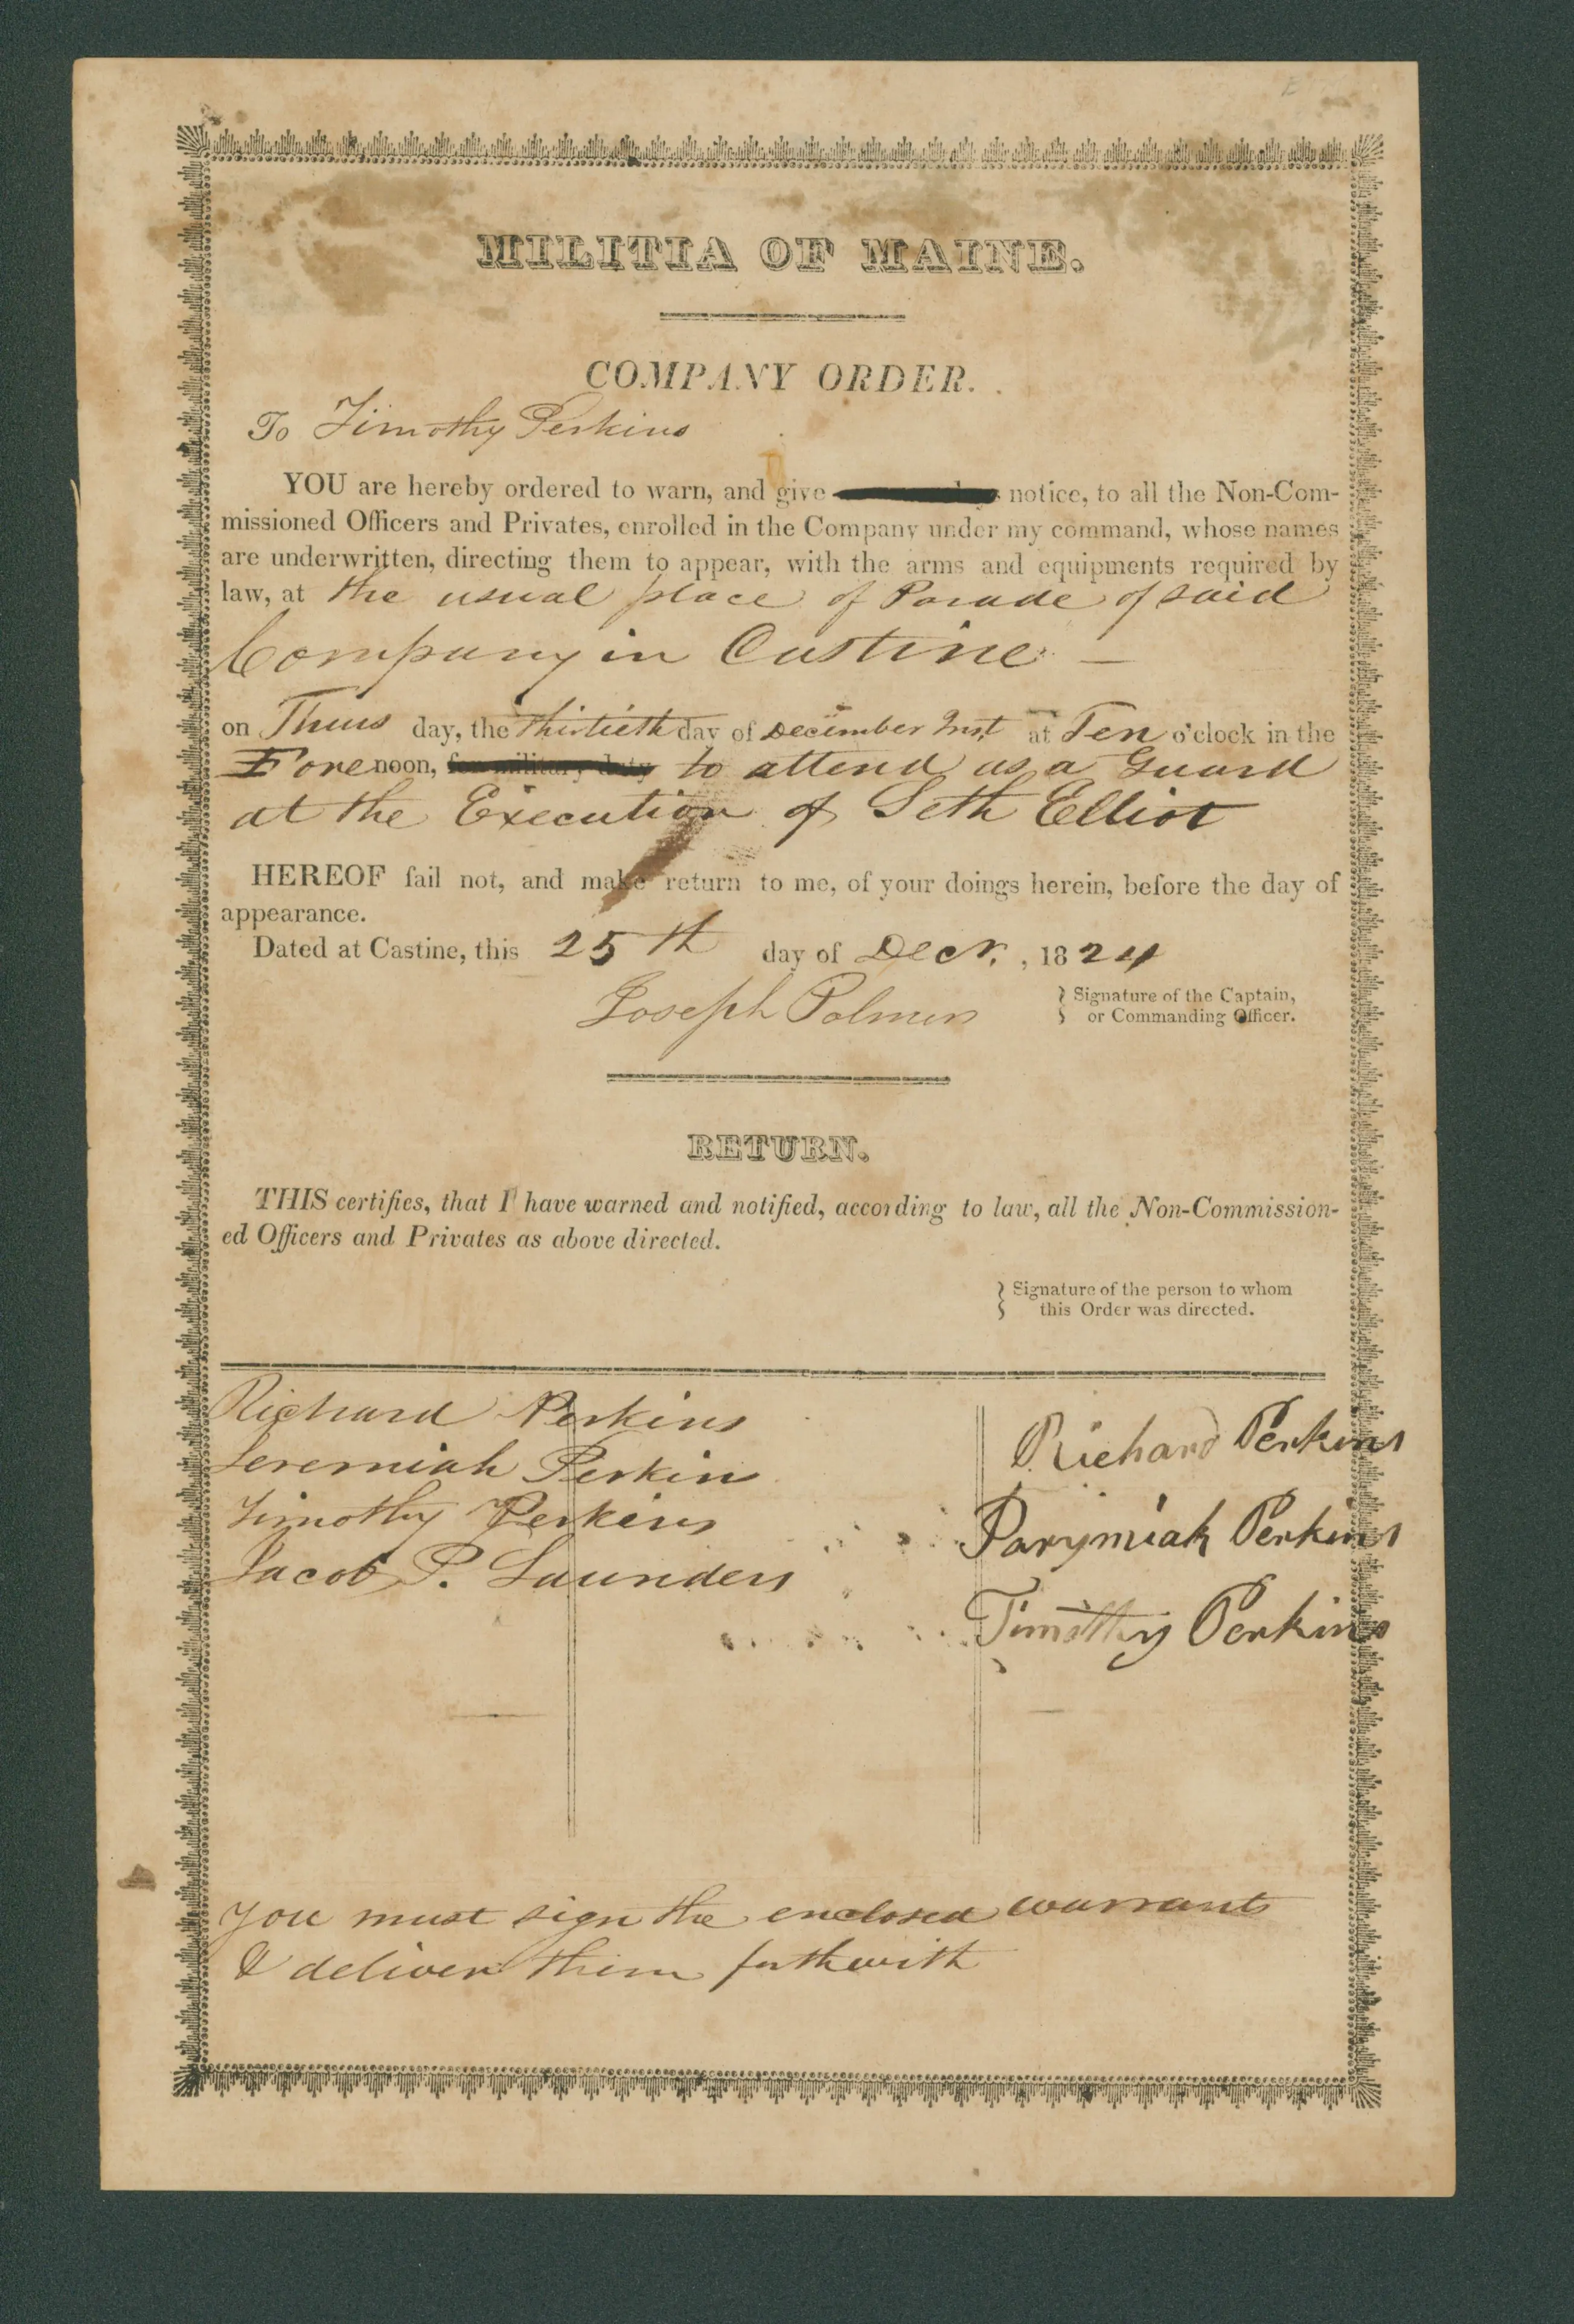 MILITIA OF MAINE.
COMPANY ORDER.
To Timothy Perkins
YOU are hereby ordered to warn, and give notice, to all the Non-Com-
missioned Officers and Privates, enrolled in the Company under my command, whose names
are underwritten, directing them to appear, with the arms and equipments required by
law, at the usual place of Parade of said
Company in Castine —
on Thurs day, the thirtieth day of December Inst at Ten o'clock in the
Forenoon, for military duty to attend as a Guard
at the Execution of Seth Elliot
HEREOF fail not, and make return to me, of your doings herein, before the day of
appearance.
Dated at Castine, this 25th day of Decr. , 1824
Joseph Palmer
Signature of the Captain,
or Commanding Officer.
RETURN.
THIS certifies, that I have warned and notified, according to law, all the Non-Commission-
ed Officers and Privates as above directed.
Signature of the person to whom
this Order was directed.
Richard Perkins
Jeremiah Perkins
Timothy Perkins
Jacob P. Saunders
Richard Perkins
Parymiah Perkins
Timothy Perkins
you must sign the enclosed warrants
& deliver them forthwith